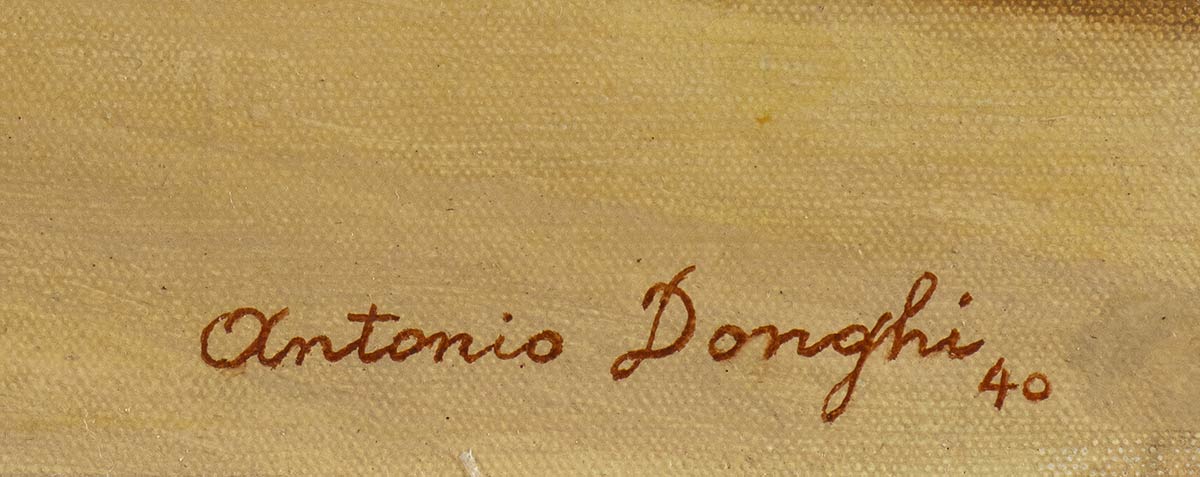 Antonio Donghi 40